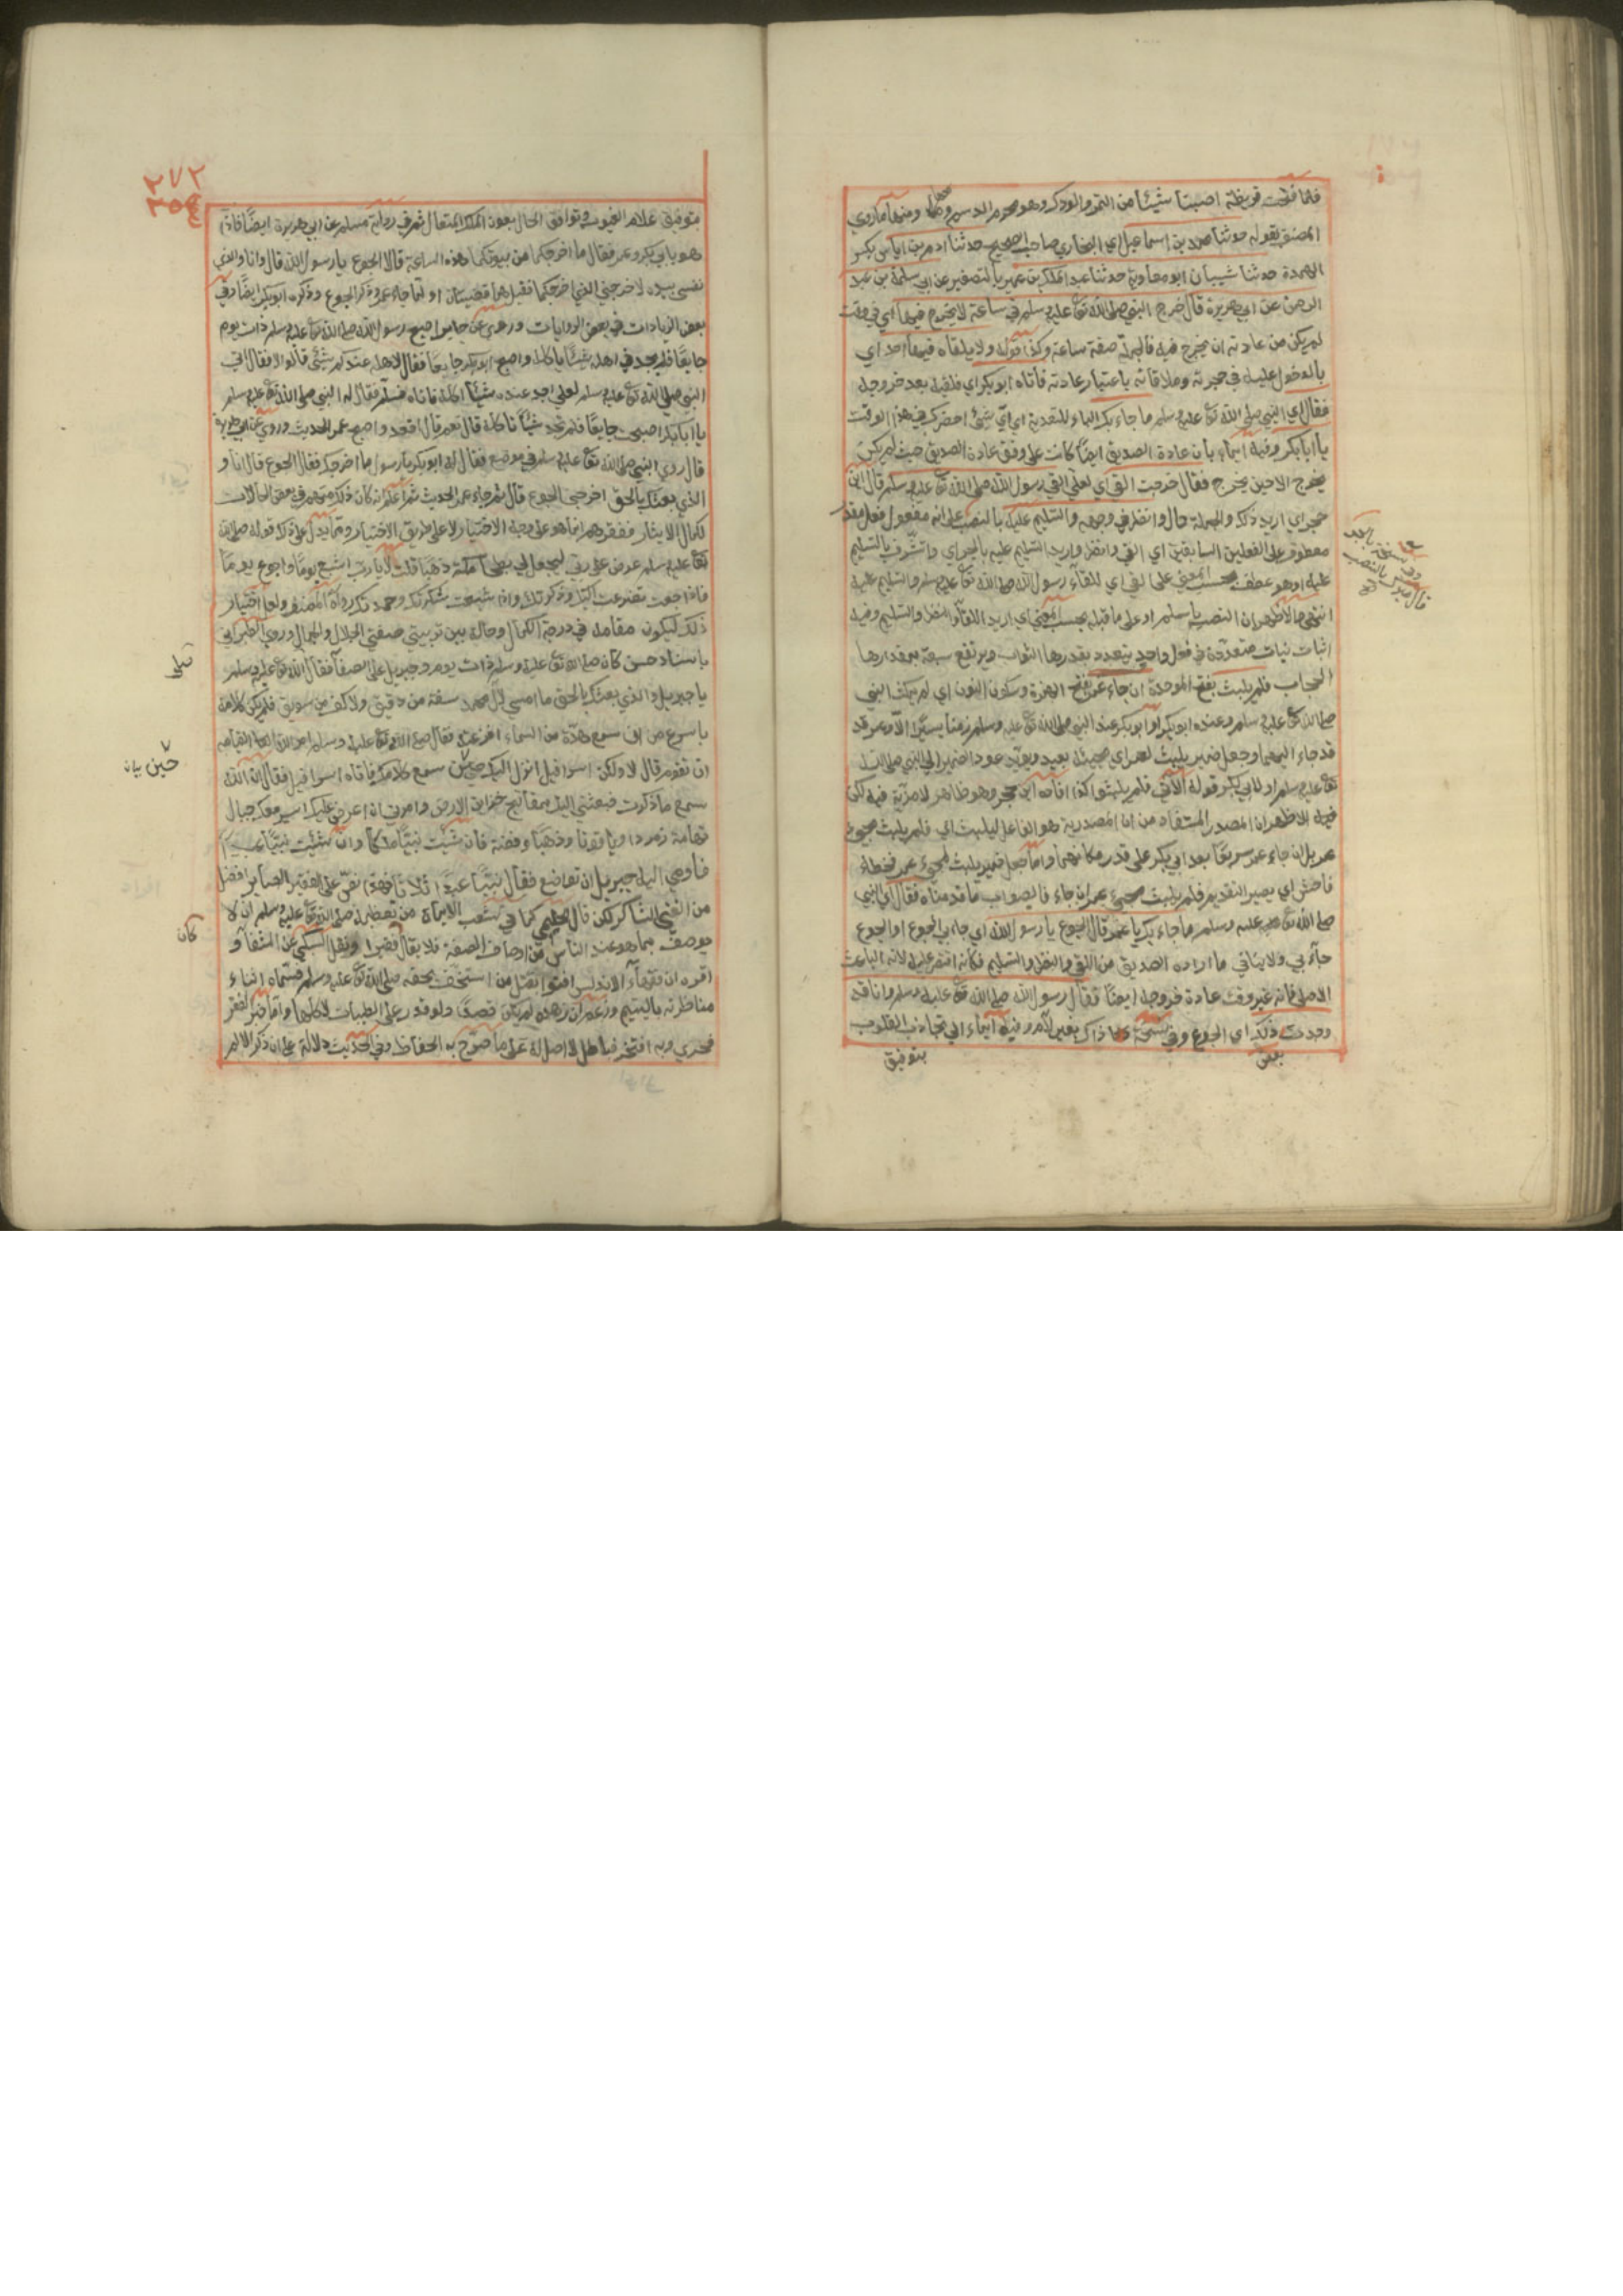 فلما فتحت قريظة اصبنا شيئا من التمر والودك وهو محركة الدسم ومنها ما روي
المصنف بقوله حدثنا محمد بن اسماعيل اي البخاري صاحب الصحيح حدثنا ادم بن ابي اياس بكسر
الهمزة حدثنا شيبان ابو معاوية حدثنا عبد الملك بن عمير بالتصغير عن ابي سلمة بن عبد
الرحمن عن ابي هريرة قال خرج النبي صلى الله تع عليه وسلم في ساعة لا يخرج فيها اي في وقت
لم يكن من عادته ان يخرج فيه فالجملة صفة ساعة وكذا قوله ولا يلقاه فيها احد اي
بالدخول عليه في حجرته وملاقاته باعتبار عادته فأتاه ابو بكر اي فلقيه بعد خروجه
فقال اي النبي صلى الله تع عليه وسلم ما جاء بك الباء للتعدية اي ايّ شئ احضرك في هذا الوقت
يا ابا بكر وفيه ايماء بان عادة الصديق ايضا كانت على وفق عادة الصديق حيث لم يكن
يخرج الا حين يخرج فقال خرجت القى اي لعلي القى رسول الله صلى الله تع عليه وسلم قال ابن
حجر اي اريد ذلك والجملة حال وانظر في وجهه والتسليم عليه بالنصب على انه مفعول فعل مقدر
معطوف على الفعلين السابقين اي القى وانظر واريد التسليم عليه بالجر اي واتشرف بالتسليم
عليه او هو عطف بحسب المعنى على القى اي للقاء رسول الله صلى الله تع عليه وسلم والتسليم عليه
اثبات نيات متعددة في فعل واحد يتعدد بقدرها الثواب ويرتفع سعة بمقدارها
الحجاب فلم يلبث بفتح الموحدة ان جاء عمر بفتح الهمزة وسكون النون اي لم يمكث النبي
صلى الله تع عليه وسلم وعنده ابو بكر او ابو بكر عند النبي صلى الله تع عليه وسلم زمنا يسيرا الا وعمر قد
قد جاء اليهما وجعل ضمير يلبث لعمر اي مجيئه بعيد ويؤيد عود الضمير الى النبي صلى الله
تع عليه وسلم او لابي بكر قوله الآتي فلم يلبثوا كذا افاده ابن حجر وهو ظاهر لا مرية فيه لكن
فيه الاظهر ان المصدر المستفاد من ان المصدرية هو الفاعل ليلبث اي فلم يلبث مجئ
عمر بل ان جاء عمر سريعا بعد ابي بكر على قدر مكانهما واما جعل ضمير يلبث لمجئ عمر فخطاء
فاحش اي يصير التقدير فلم يلبث مجئ عمر ان جاء فالصواب ما قدمناه فقال اي النبي
صلى الله تع عليه وسلم ما جاء بك يا عمر قال الجوع يا رسول الله اي جاء بي الجوع او الجوع
جآء بي ولا ينافي ما اراده الصديق من اللقى والنظر والتسليم فكأنه اقتصر عليه لانه الباعث
الاصلي فانه غير وقت عادة خروجه ايضا فقال رسول الله صلى الله تع عليه وسلم وانا قد
وجدت ذلك اي الجوع وفي نسخة ذاك بغير لام وفيه ايماء الى تجاذب القلوب
بعض
بتوفيق
وفي نسخة
بالنصب
٢٧٢
بتوفيق علام الغيوب وتوافق الحال بعون الملك المتعال ثم في رواية مسلم عن ابي هريرة ايضا فاذا
هو بابي بكر وعمر فقال ما اخرجكما من بيوتكما هذه الساعة قالا الجوع يا رسول الله قال وانا والذي
نفسي بيده لاخرجني الذي اخرجكما فقيل هما قضيتان او لما جاء عمر وذكر الجوع وذكره ابو بكر ايضا وفي
بعض الزيادات في بعض الروايات وروي عن جابر اصبح رسول الله صلى الله تع عليه وسلم ذات يوم
جايعا فلم يجد في اهله شيئا ياكله واصبح ابو بكر جايعا فقال لاهله عندكم شئ قالوا لا فقال اتي
النبي صلى الله تع عليه وسلم لعلي اجد عنده شيئا آكله فاتاه فسلم فقال له النبي صلى الله تع عليه وسلم
يا ابا بكر اصبحت جايعا فلم تجد شيئا تاكله قال نعم قال اقعد واصبح عمر الحديث وروي عن ابي هريرة
الذي بعثك بالحق اخرجني الجوع قال ثم جاء عمر الحديث ثم اعلم انه كان ذلك منهم في بعض الحالات
لكمال الايثار ففقرهم انما هو على وجه الاختيار لا على طريق الاضطرار ومما يدل على ذلك قوله صلى الله
تع عليه وسلم عرض علي ربي ليجعل لي بطحاء مكة ذهبا قلت لا يا رب اشبع يوما واجوع يوما
فاذا جعت تضرعت اليك وذكرتك واذا شبعت شكرتك وحمدتك رواه المصنف ولعل اختيار
ذلك ليكون مقامه في درجة الكمال وحاله بين تربيتي صفتي الجلال والجمال وروى الطبراني
باسناد حسن كان صلى الله تع عليه وسلم ذات يوم وجبريل على الصفا فقال صلى الله تع عليه وسلم
يا جبريل والذي بعثك بالحق ما امسى لال محمد سفة من دقيق ولا كف من سويق فلم يكن كلامه
باسرع من ان سمع هدّة من السماء افزعته فقال صلى الله تع عليه وسلم امر الله القيامة
ان تقوم قال لا ولكن اسرافيل انزل اليك حين سمع كلامك فاتاه اسرافيل فقال ان الله
سمع ما ذكرت فبعثني اليك بمفاتيح خزاين الارض وامرني ان اعرض عليك اسير معك جبال
تهامة زمردا وياقوتا وذهبا وفضة فان شئت نبيا ملكا وان شئت نبيا عبدا
فاومى اليه جبريل ان تواضع فقال نبيا عبدا ثلاثا فهذا نص على ان الفقير الصابر افضل
من الغني الشاكر لكن قال الحليمي كما في شعب الايمان من تعظيمه صلى الله تع عليه وسلم ان لا
يوصف بما هو عند الناس من اوصاف الضعة فلا يقال فقيرا ونقل السبكي عن الشفا و
اقره ان فقهاء الاندلس افتوا بقتل من استخف بحقه صلى الله تع عليه وسلم فسماه اثناء
مناظرته باليتيم وزعم ان زهده لم يكن قصدا ولو قدر على الطيبات لاكلها واما خبر الفقر
فخري وبه افتخر فباطل لا اصل له على ما صرح به الحفاظ وفي الحديث دلالة على ان ذكر الالم
حين بيان
كان